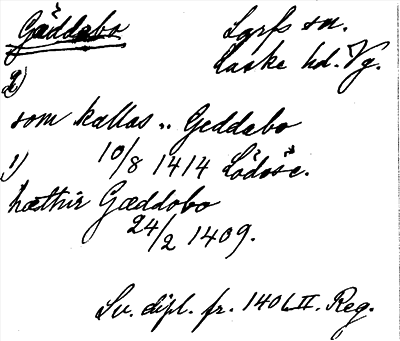 Gäddebo
Lyrfs sn.
Laske hd. Vg.
2)
som kallas „ Geddabo
10/8 1414 Lödöse.
1)
hæthir Gæddobo
24/2 1409.
Sv. dipl. fr. 1401 II. Reg.